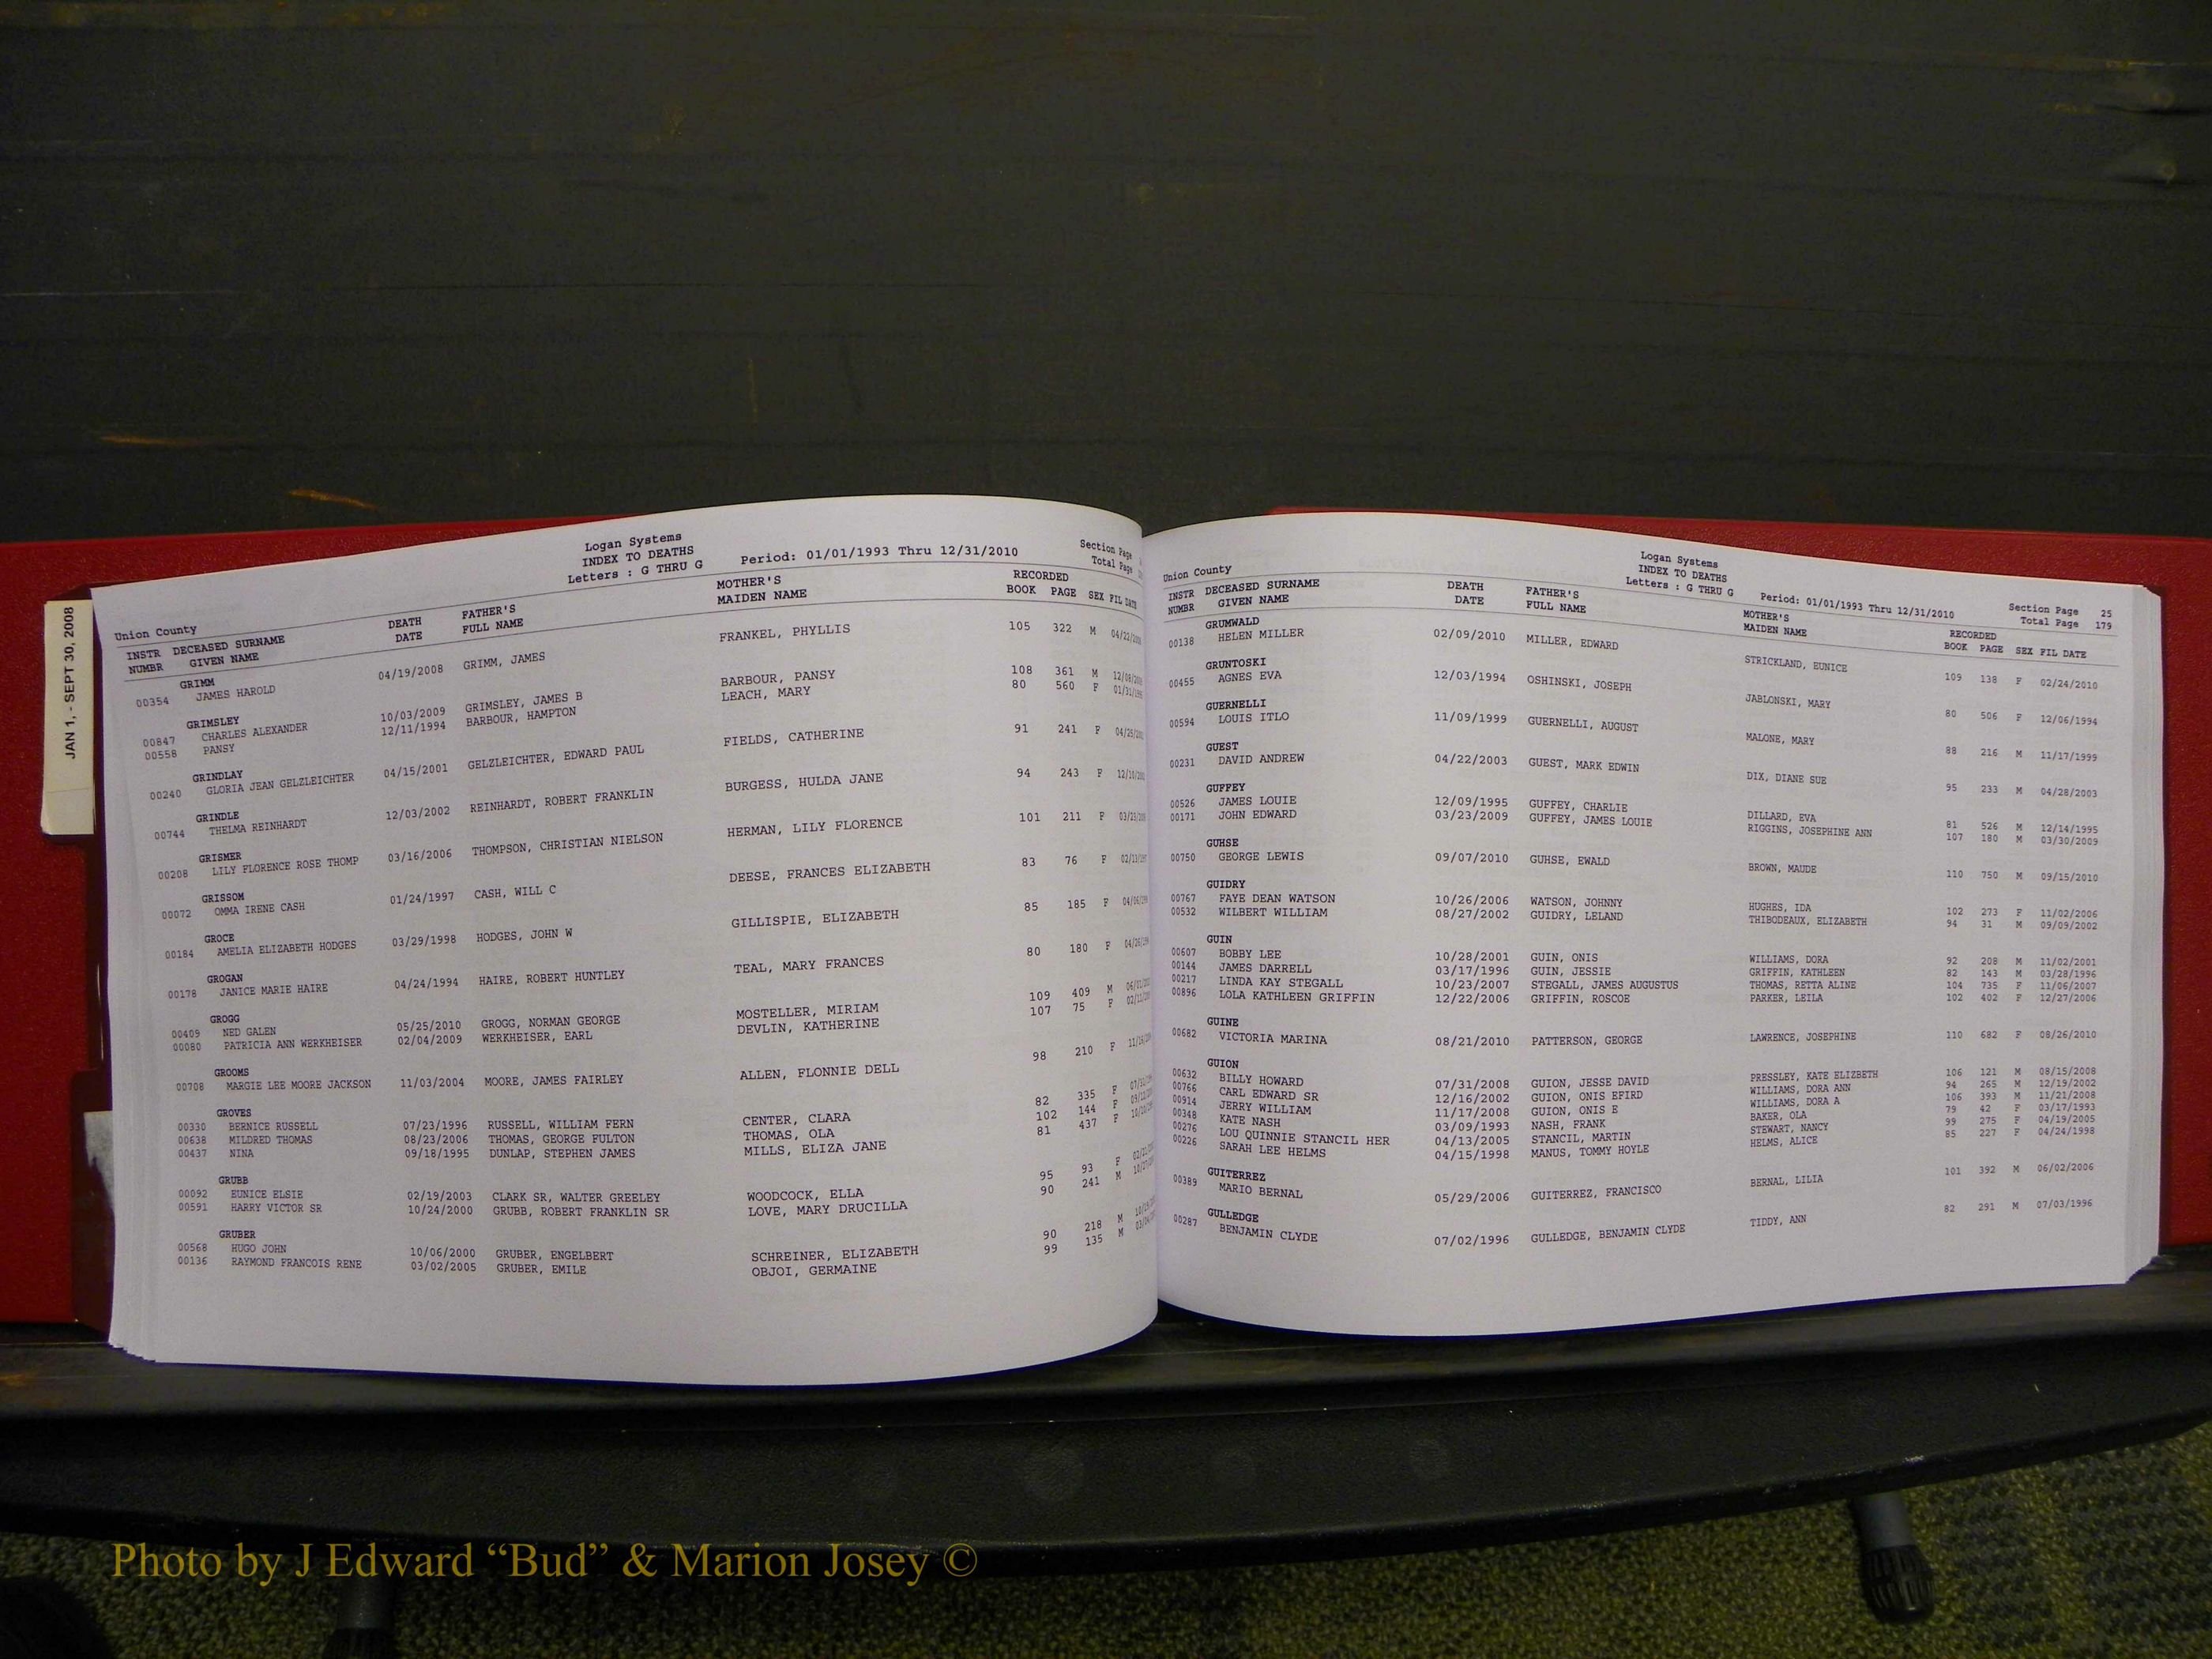 JAN 1, - SEPT 30, 2008
Logan Systems
INDEX TO DEATHS
Letters : G THRU G Period: 01/01/1993 Thru 12/31/2010 Section Page
Total Page
Union County
INSTR DECEASED SURNAME DEATH FATHER'S MOTHER'S RECORDED
NUMBR GIVEN NAME DATE FULL NAME MAIDEN NAME BOOK PAGE SEX FIL DATE
GRIMM
00354 JAMES HAROLD 04/19/2008 GRIMM, JAMES FRANKEL, PHYLLIS 105 322 M
GRIMSLEY
00847 CHARLES ALEXANDER 10/03/2009 GRIMSLEY, JAMES B BARBOUR, PANSY 108 361 M
00558 PANSY 12/11/1994 BARBOUR, HAMPTON LEACH, MARY 80 560 F
GRINDLAY
00240 GLORIA JEAN GELZLEICHTER 04/15/2001 GELZLEICHTER, EDWARD PAUL FIELDS, CATHERINE 91 241 F
GRINDLE
00744 THELMA REINHARDT 12/03/2002 REINHARDT, ROBERT FRANKLIN BURGESS, HULDA JANE 94 243 F
GRISMER
00208 LILY FLORENCE ROSE THOMP 03/16/2006 THOMPSON, CHRISTIAN NIELSON HERMAN, LILY FLORENCE 101 211 F
GRISSOM
00072 OMMA IRENE CASH 01/24/1997 CASH, WILL C DEESE, FRANCES ELIZABETH 83 76 F
GROCE
00184 AMELIA ELIZABETH HODGES 03/29/1998 HODGES, JOHN W GILLISPIE, ELIZABETH 85 185 F
GROGAN
00178 JANICE MARIE HAIRE 04/24/1994 HAIRE, ROBERT HUNTLEY TEAL, MARY FRANCES 80 180 F
GROGG
00409 NED GALEN 05/25/2010 GROGG, NORMAN GEORGE MOSTELLER, MIRIAM 109 409 M
00080 PATRICIA ANN WERKHEISER 02/04/2009 WERKHEISER, EARL DEVLIN, KATHERINE 107 75 F
GROOMS
00708 MARGIE LEE MOORE JACKSON 11/03/2004 MOORE, JAMES FAIRLEY ALLEN, FLONNIE DELL 98 210 F
GROVES
00330 BERNICE RUSSELL 07/23/1996 RUSSELL, WILLIAM FERN CENTER, CLARA 82 335 F
00638 MILDRED THOMAS 08/23/2006 THOMAS, GEORGE FULTON THOMAS, OLA 102 144 F
00437 NINA 09/18/1995 DUNLAP, STEPHEN JAMES MILLS, ELIZA JANE 81 437 F
GRUBB
00092 EUNICE ELSIE 02/19/2003 CLARK SR, WALTER GREELEY WOODCOCK, ELLA 95 93 F
00591 HARRY VICTOR SR 10/24/2000 GRUBB, ROBERT FRANKLIN SR LOVE, MARY DRUCILLA 90 241 M
GRUBER
00568 HUGO JOHN 10/06/2000 GRUBER, ENGELBERT SCHREINER, ELIZABETH 90 218 M
00136 RAYMOND FRANCOIS RENE 03/02/2005 GRUBER, EMILE OBJOI, GERMAINE 99 135 M
Logan Systems
INDEX TO DEATHS
Letters : G THRU G Period: 01/01/1993 Thru 12/31/2010 Section Page 25
Total Page 179
Union County
INSTR DECEASED SURNAME DEATH FATHER'S MOTHER'S RECORDED
NUMBR GIVEN NAME DATE FULL NAME MAIDEN NAME BOOK PAGE SEX FIL DATE
GRUMWALD
00138 HELEN MILLER 02/09/2010 MILLER, EDWARD STRICKLAND, EUNICE 109 138 F 02/24/2010
GRUNTOSKI
00455 AGNES EVA 12/03/1994 OSHINSKI, JOSEPH JABLONSKI, MARY 80 506 F 12/06/1994
GUERNELLI
00594 LOUIS ITLO 11/09/1999 GUERNELLI, AUGUST MALONE, MARY 88 216 M 11/17/1999
GUEST
00231 DAVID ANDREW 04/22/2003 GUEST, MARK EDWIN DIX, DIANE SUE 95 233 M 04/28/2003
GUFFEY
00526 JAMES LOUIE 12/09/1995 GUFFEY, CHARLIE DILLARD, EVA 81 526 M 12/14/1995
00171 JOHN EDWARD 03/23/2009 GUFFEY, JAMES LOUIE RIGGINS, JOSEPHINE ANN 107 180 M 03/30/2009
GUHSE
00750 GEORGE LEWIS 09/07/2010 GUHSE, EWALD BROWN, MAUDE 110 750 M 09/15/2010
GUIDRY
00767 FAYE DEAN WATSON 10/26/2006 WATSON, JOHNNY HUGHES, IDA 102 273 F 11/02/2006
00532 WILBERT WILLIAM 08/27/2002 GUIDRY, LELAND THIBODEAUX, ELIZABETH 94 31 M 09/09/2002
GUIN
00607 BOBBY LEE 10/28/2001 GUIN, ONIS WILLIAMS, DORA 92 208 M 11/02/2001
00144 JAMES DARRELL 03/17/1996 GUIN, JESSIE GRIFFIN, KATHLEEN 82 143 M 03/28/1996
00217 LINDA KAY STEGALL 10/23/2007 STEGALL, JAMES AUGUSTUS THOMAS, RETTA ALINE 104 735 F 11/06/2007
00896 LOLA KATHLEEN GRIFFIN 12/22/2006 GRIFFIN, ROSCOE PARKER, LEILA 102 402 F 12/27/2006
GUINE
00682 VICTORIA MARINA 08/21/2010 PATTERSON, GEORGE LAWRENCE, JOSEPHINE 110 682 F 08/26/2010
GUION
00632 BILLY HOWARD 07/31/2008 GUION, JESSE DAVID PRESSLEY, KATE ELIZBETH 106 121 M 08/15/2008
00766 CARL EDWARD SR 12/16/2002 GUION, ONIS EFIRD WILLIAMS, DORA ANN 94 265 M 12/19/2002
00914 JERRY WILLIAM 11/17/2008 GUION, ONIS E WILLIAMS, DORA A 106 393 M 11/21/2008
00348 KATE NASH 03/09/1993 NASH, FRANK BAKER, OLA 79 42 F 03/17/1993
00276 LOU QUINNIE STANCIL HER 04/13/2005 STANCIL, MARTIN STEWART, NANCY 99 275 F 04/19/2005
00226 SARAH LEE HELMS 04/15/1998 MANUS, TOMMY HOYLE HELMS, ALICE 85 227 F 04/24/1998
GUITERREZ
00389 MARIO BERNAL 05/29/2006 GUITERREZ, FRANCISCO BERNAL, LILIA 101 392 M 06/02/2006
GULLEDGE
00287 BENJAMIN CLYDE 07/02/1996 GULLEDGE, BENJAMIN CLYDE TIDDY, ANN 82 291 M 07/03/1996
Photo by J Edward “Bud” & Marion Josey ©